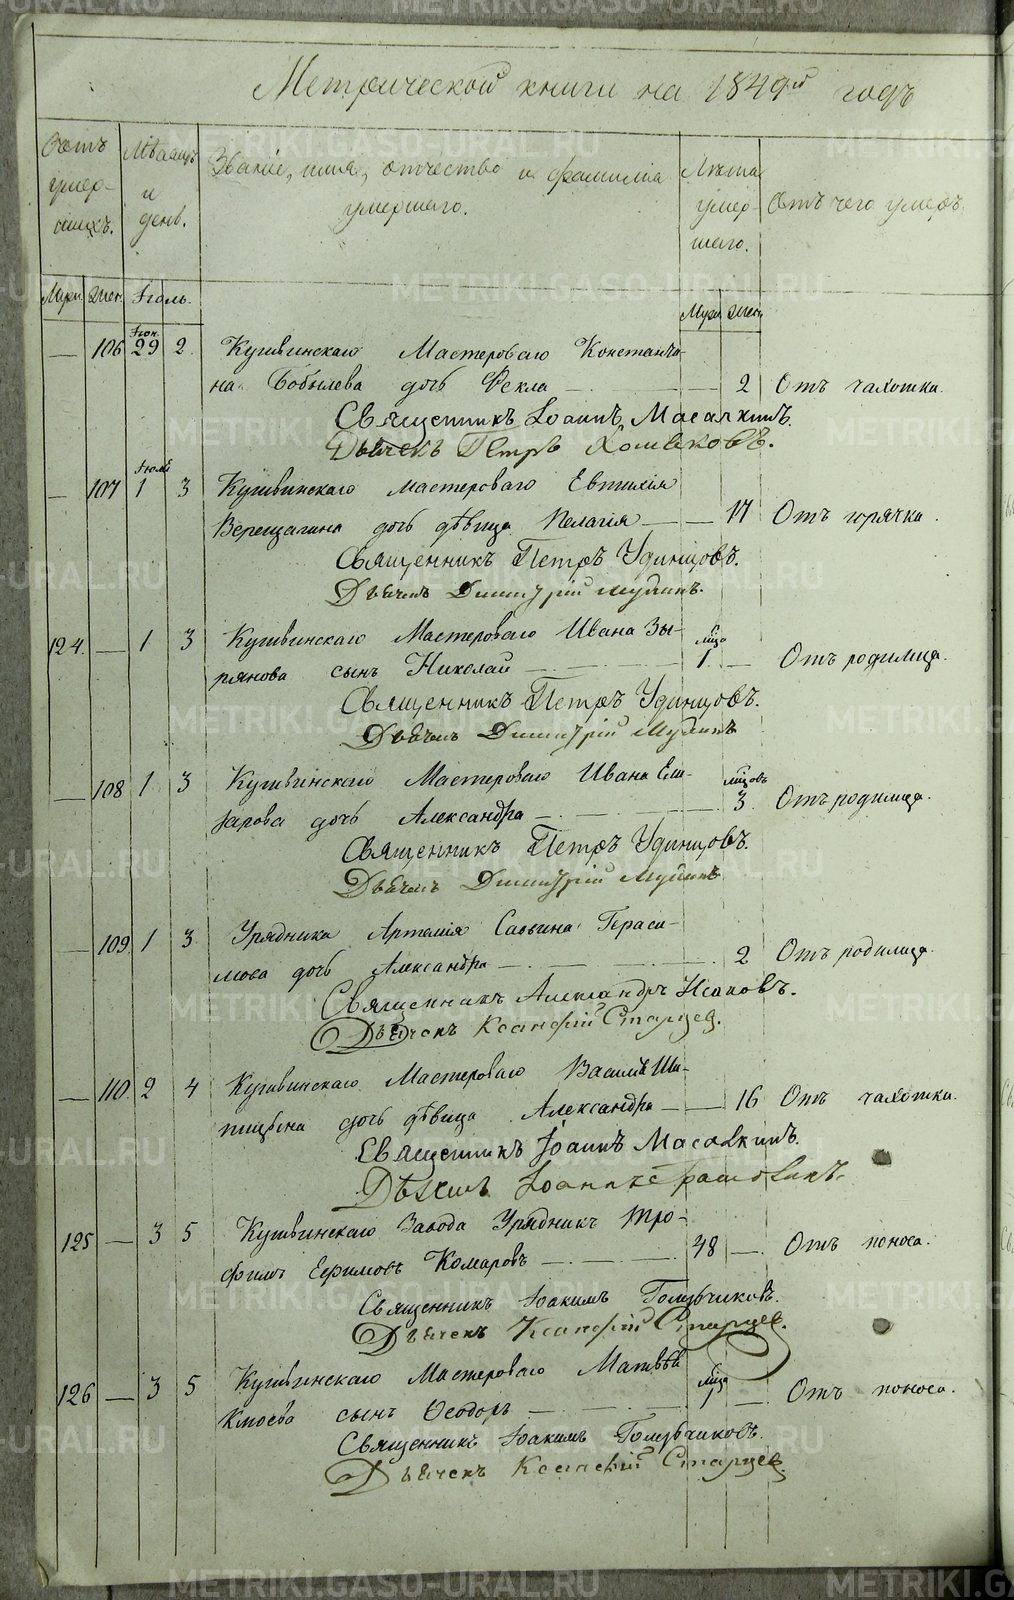 Метрической книги на 1849й годъ
Счетъ умер-шихъ.
Мѣсяцъ и день.
Званіе, имя, отчество и фамилія умершаго.
Лѣта умер-шаго.
Отъ чего умеръ.
Муж. Жен. Іюль.
Муж. Жен.
Іюн.
— 106 29 2 Кушвинскаго Мастероваго Константи-
на Бобылева дочь Фекла — — 2 Отъ чахотки.
Священникъ Іоаннъ Масалкинъ.
Дьячекъ Петръ Хомяковъ.
Іюля
— 107 1 3 Кушвинскаго мастероваго Евтихія
Верещагина дочь дѣвица Пелагія — — 17 Отъ горячки.
Священникъ Петръ Удинцовъ.
Дьячекъ Димитрій
124. — 1 3 Кушвинскаго Мастероваго Ивана Зы-
рянова сынъ Николай — 1 — Отъ родимца.
Священникъ Петръ Удинцовъ.
Дьячекъ Димитрій
— 108 1 3 Кушвинскаго Мастероваго Ивана Ели-
зарова дочь Александра — — 3 Отъ родимца.
Священникъ Петръ Удинцовъ.
Дьячекъ Димитрій
— 109. 1 3 Урядника Артемія Саввина Гераси-
мова дочь Александра — 2 Отъ родимца.
Священникъ Александръ Исаковъ.
Дьячекъ Ксанфій Старцев.
— 110 2 4 Кушвинскаго Мастероваго Василія Ша-
дочь дѣвица Александра — — 16 Отъ чахотки.
Священникъ Іоаннъ Масалкинъ.
Іоаннъ
125 — 3 5 Кушвинскаго Завода Урядникъ Тро-
фимъ Ефимовъ Комаровъ — 48 — Отъ поноса.
Священникъ Іоакимъ Голубчиковъ.
Дьячекъ Ксанфій Старцев.
126 — 3 5 Кушвинскаго Мастероваго Матвѣя
сынъ Ѳеодоръ — 1 — Отъ поноса.
Священникъ Іоакимъ Голубчиковъ.
Дьячекъ Ксанфій Старцев
METRIKI.GASO-URAL.RU